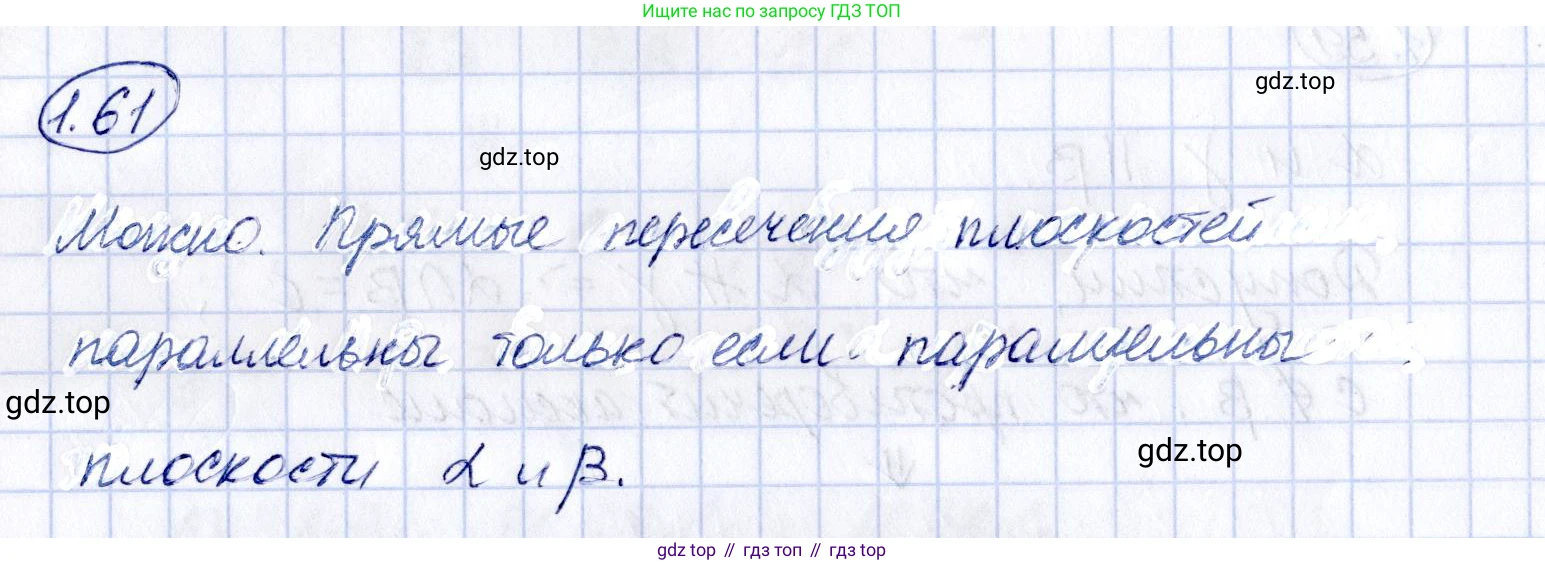 Ищите нас по запросу ГДЗ ТОП
1.61
gdz.top
gdz.top
Можно. Прямые пересечения плоскостей
параллельны только если параллельны
gdz.top
gdz.top
плоскости α и β.
gdz top // гдз топ // gdz top